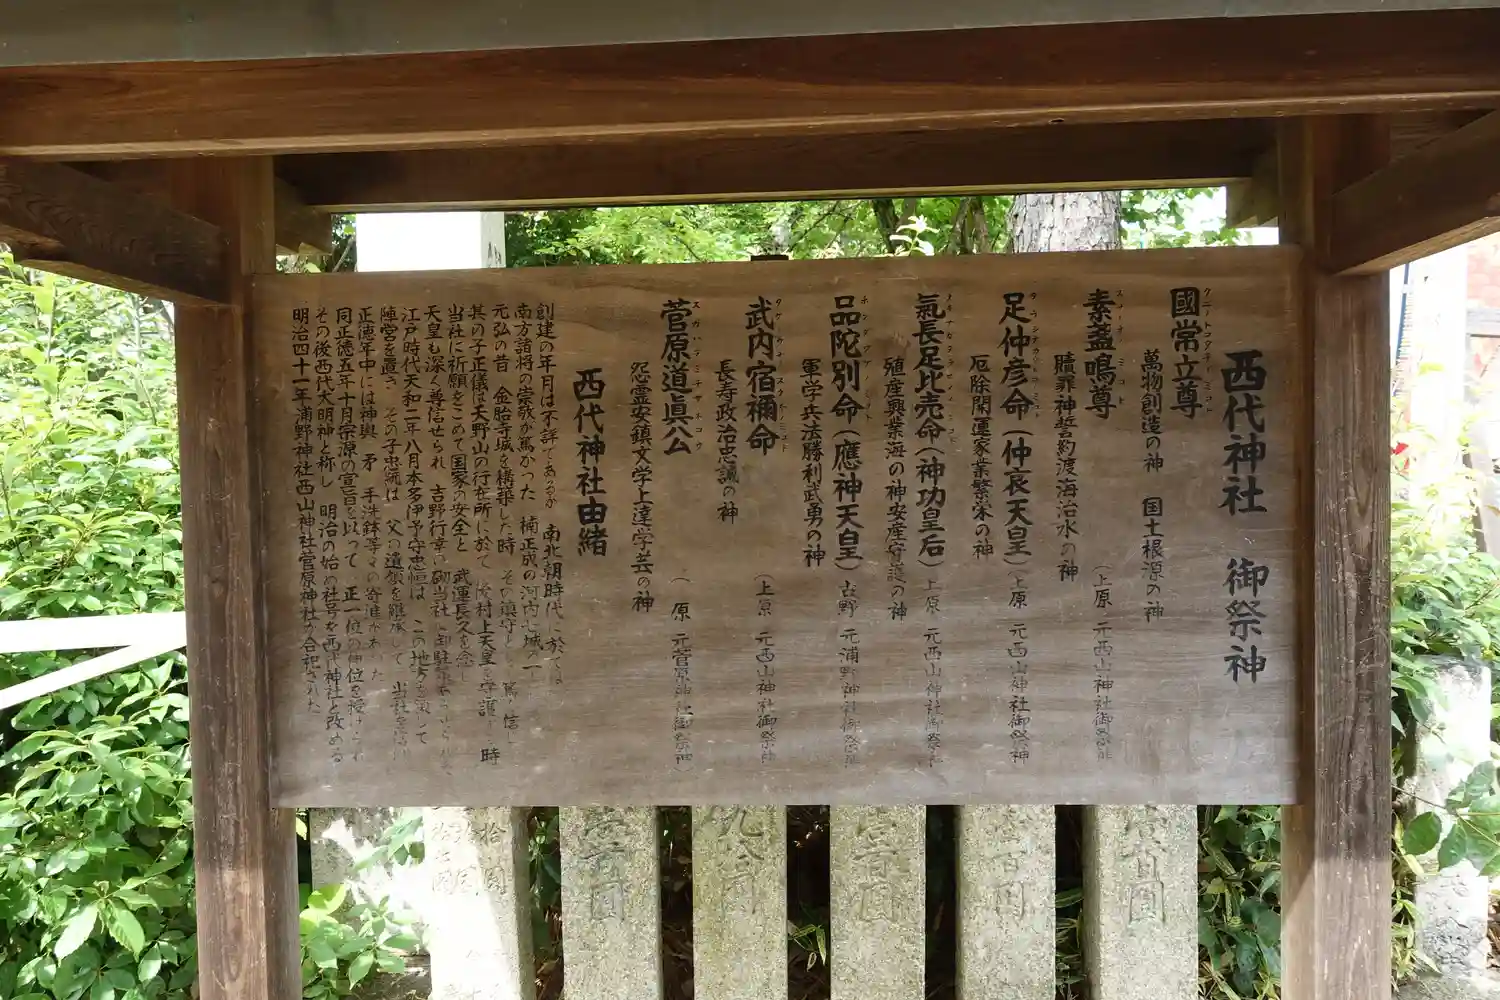 西代神社 御祭神
クニトコタチノミコト
國常立尊
萬物創造の神 国土根源の神
スサノオノミコト
素盞鳴尊
贖罪神誓約渡海治水の神
(上原 元西山神社御祭神
足仲彦命(仲哀天皇)
厄除開運家業繁栄の神
(上原 元西山神社御祭神
氣長足比売命(神功皇后)
殖産興業海の神安産守護の神
上原 元西山神社御祭神
品陀別命(應神天皇)
軍学兵法勝利武勇の神
古野 元浦野神社御祭神
武内宿禰命
長寿政治忠誠の神
(上原 元西山神社御祭神
スガハラミチザネコウ
菅原道眞公
怨霊安鎮文学上達学芸の神
(原 元菅原神社御祭神)
西代神社由緒
創建の年月は不詳であるが 南北朝時代に於ては
南方諸将の崇敬が篤かった 楠正成の河内七城の一
元弘の昔 金胎寺城を構築した時 その鎮守として篤く信し
其の子正儀は天野山の行在所に於て 後村上天皇を守護し 時
当社に祈願をこめて国家の安全と 武運長久を念し
天皇も深く尊信せられ 吉野行幸の砌当社に御駐
江戸時代天和二年八月本多伊予守忠恒は この地方を領して
陣営を置き その子忠統は 父の遺領を継承して 当社を
正徳年中には神輿 矛 手洗鉢等々の寄進があった
同正徳五年十月宗源の宣旨を以って 正一位の神位を授けられ
その後西代大明神と称し 明治の始め社号を西代神社と改める
明治四十一年浦野神社西山神社菅原神社が合祀された
拾圓
壹百圓
九
壹百圓
壹百圓
壹百圓